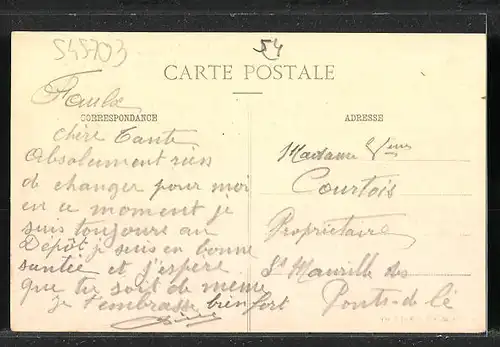 545703
54
CARTE POSTALE
Faulx
CORRESPONDANCE
ADRESSE
chère Tante
Absolument rien
de changer pour moi
en ce moment je
suis toujours au
Dépôt je suis en bonne
santée et j'espère
que tu sort de meme
je t'embrasse bien fort
Madame Vve
Courtois
Propriétaire
St Maurille des
Ponts-de-Cé